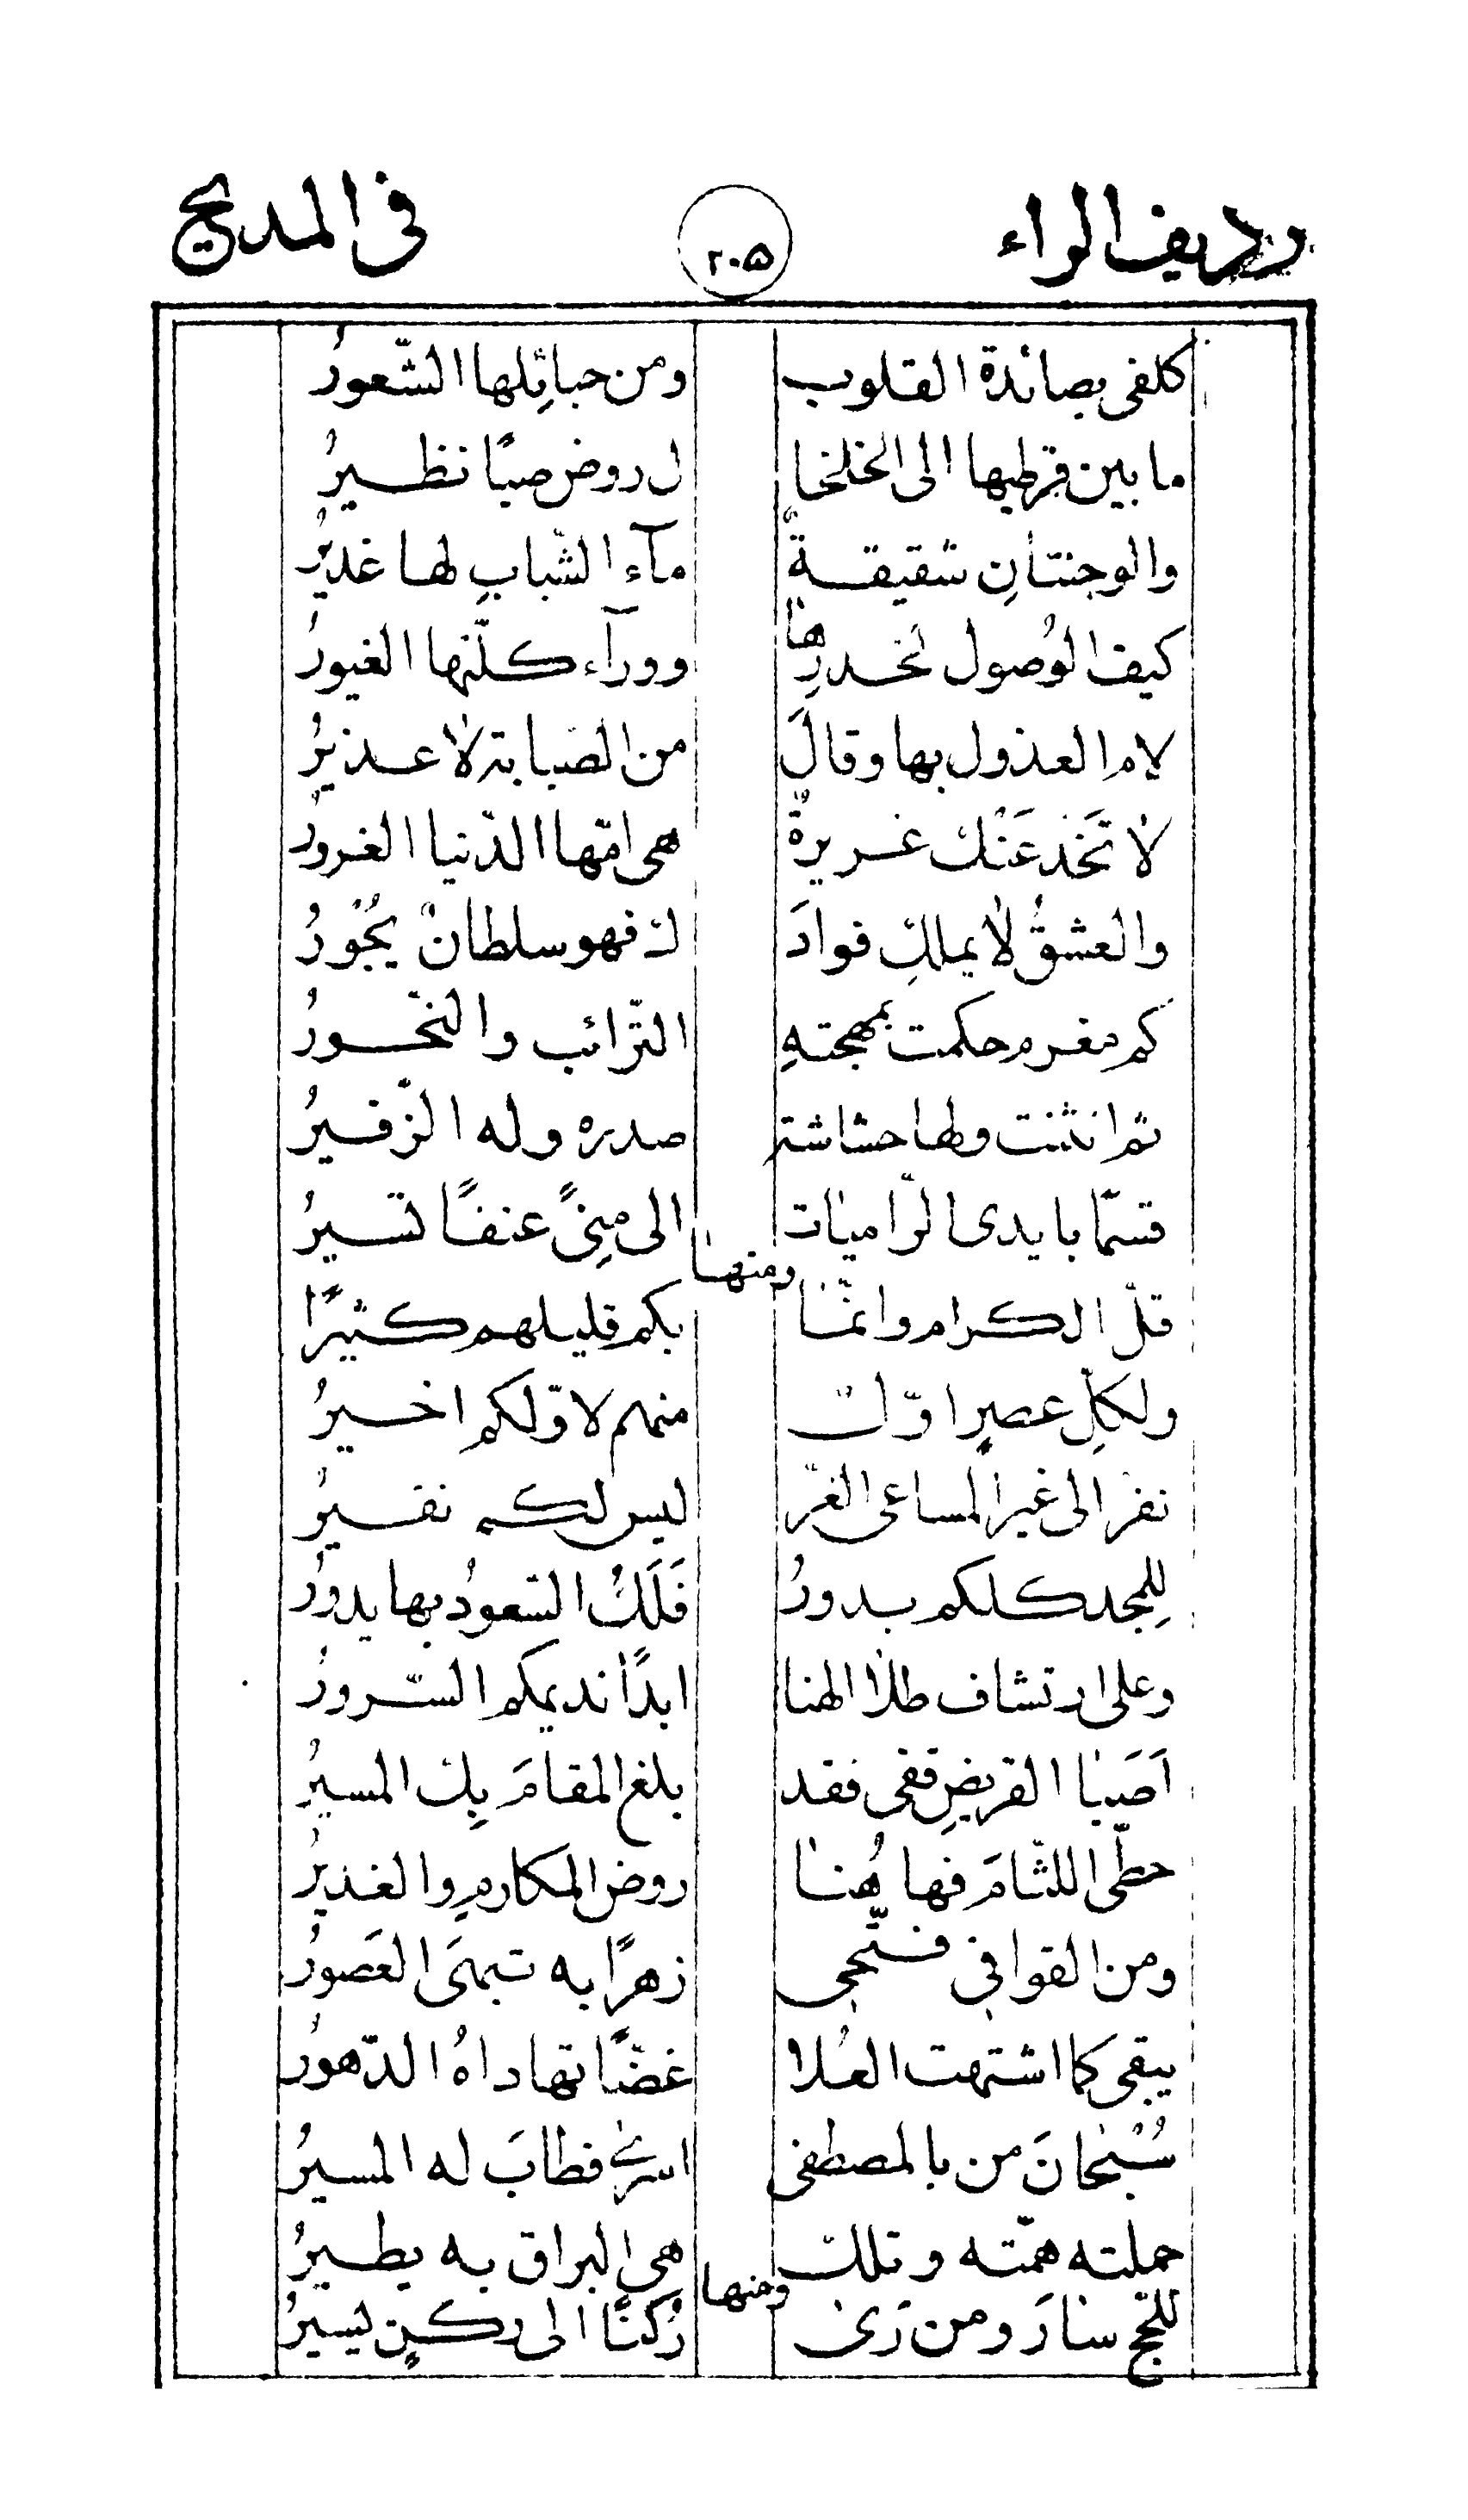 رديف الراء ٢٠٥ فى المديح
كلفى بصائدة القلوب ومن حبائِلها الشّعورُ
ما بين قرطيها الى الخلخا ل روض صبًا نظيرُ
والوجنتانِ شقيقةٌ مآء الشّبابِ لها غديرُ
كيف الوُصول لخدرِها وورآء كلّتها الغيورُ
لام العذول بها وقالَ من الصَبابة لا عذيرُ
لا تَخدَعَنْكَ غريرةٌ هى امّها الدّنيا الغرورُ
والعشقُ لا يملكِ فوادَ ك فهو سلطانٌ يَجُورُ
كم مغرم حكمت بمهجتهِ التّرائب والنّحورُ
ثم انثنت ولها حشاشة صدره وله الزّفيرُ
قسمًا بايدى الرّاميات الى مِنىً عنفًا تسيرُ
ومنها
قلّ الكرام وانّما بكم قليلهم كثيرًا
ولكلِّ عصرٍ اوّلٌ منهم لاوّلكم اخيرُ
نفرٌ الى غير المساعى الغرّ ليس لكم نفيرُ
لِلمجد كلكم بدورُ فَلَكُ السّعودُ بها يدورُ
وعلى ارتشاف طلا الهنا ابدًا نديمكم السّرورُ
اَصَبا القريضِ قفى فقد بلغ المقامَ بِك المسيرُ
حطّى اللثامَ فها هُنا روض المكارمِ والغديرُ
ومن القوافى فتّحى زهرًا به تبهىَ العَصورُ
يبقى كما اشتهت العُلا غضًّا تهاداهُ الدّهورُ
سُبْحانَ من بالمصطفى اسرى فطابَ له المسيرُ
حملته همّته وتلك هى البراق به يطيرُ
ومنها
للحّج سارَ ومن رَى رُكنًا الى ركنٍ يسيرُ